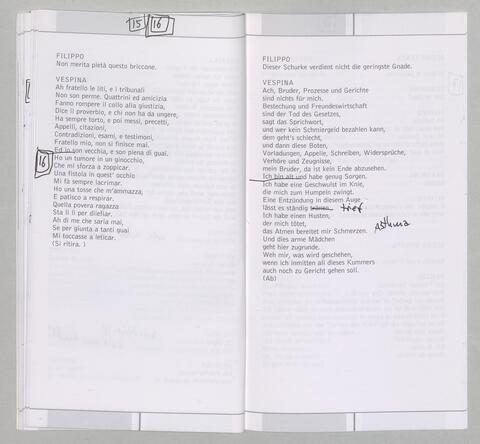 15 16
FILIPPO
Non merita pietà questo briccone.
VESPINA
Ah fratello le liti, e i tribunali
Non son perme. Quattrini ed amicizia
Fanno rompere il collo alla giustizia,
Dice il proverbio, e chi non ha da ungere,
Ha sempre torto, e poi messi, precetti,
Appelli, citazioni,
Contradizioni, esami, e testimoni,
Fratello mio, non si finisce mai.
Ed io son vecchia, e son piena di guai.
16
Ho un tumore in un ginocchio,
Che mi sforza a zoppicar.
Una fistola in quest' occhio
Mi fà sempre lacrimar.
Ho una tosche che m'ammazza,
E patisco a respirar.
Quella povera ragazza
Sta lì lì per
Ah di me che saria mai,
Se per giunta a tanti guai
Mi toccasse a leticar.
(Si ritira.)
FILIPPO
Dieser Schurke verdient nicht die geringste Gnade.
VESPINA
Ach, Bruder, Prozesse und Gerichte
sind nichts für mich.
Bestechung und Freundeswirtschaft
sind der Tod des Gesetzes,
sagt das Sprichwort,
und wer kein Schmiergeld bezahlen kann,
dem geht's schlecht,
und dann diese Boten,
Vorladungen, Appelle, Schreiben, Widersprüche,
Verhöre und Zeugnisse,
mein Bruder, da ist kein Ende abzusehen.
Ich bin alt und habe genug Sorgen.
Ich habe eine Geschwulst im Knie,
die mich zum Humpeln zwingt.
Eine Entzündung in diesem Auge
lässt es ständig
Ich habe einen Husten,
der mich tötet,
das Atmen bereitet mir Schmerzen. Asthma
Und dies arme Mädchen
geht hier zugrunde.
Weh mir, was wird geschehen,
wenn ich inmitten all dieses Kummers
auch noch zu Gericht gehen soll.
(Ab)